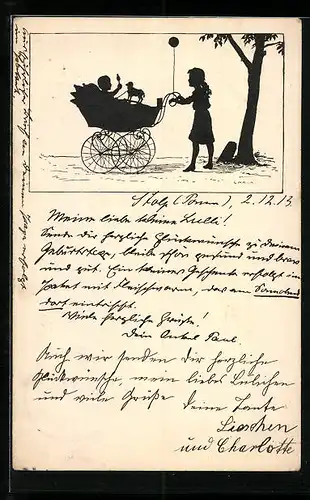 Stolp (Pom.), 2.12.13
Meine liebe kleine Lulli!
Sende dir herzliche Glückwünsche zu deinem
Geburtstage, bleibe schön gesund und brav
und gut. Ein kleines Geschenk erfolgt im
Paket mit Fleischwaren, das am Sonnabend
dort eintrifft.
Viele herzliche Grüße!
Dein Onkel Paul.
Auch wir senden dir herzliche
Glückwünsche, mein liebes
und viele Grüße
deine Tante
Lieschen
und Charlotte